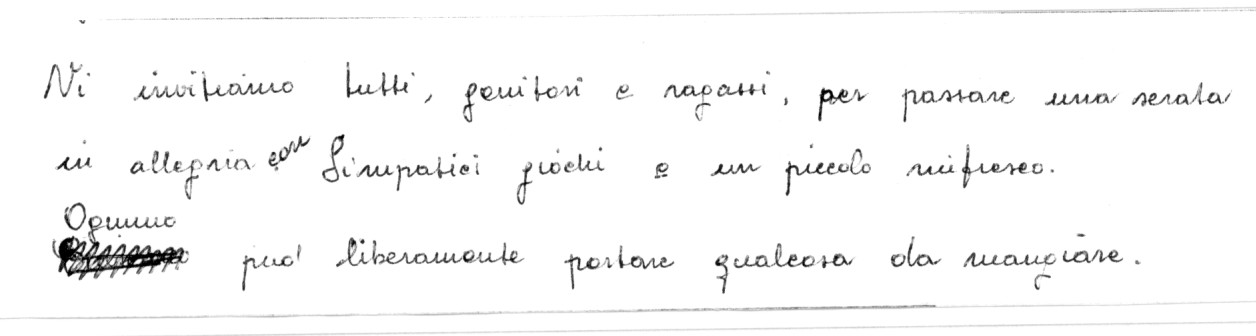 Vi invitiamo tutti, genitori e ragazzi, per passare una serata
in allegria con simpatici giochi e un piccolo rinfresco.
Ognuno
può liberamente portare qualcosa da mangiare.